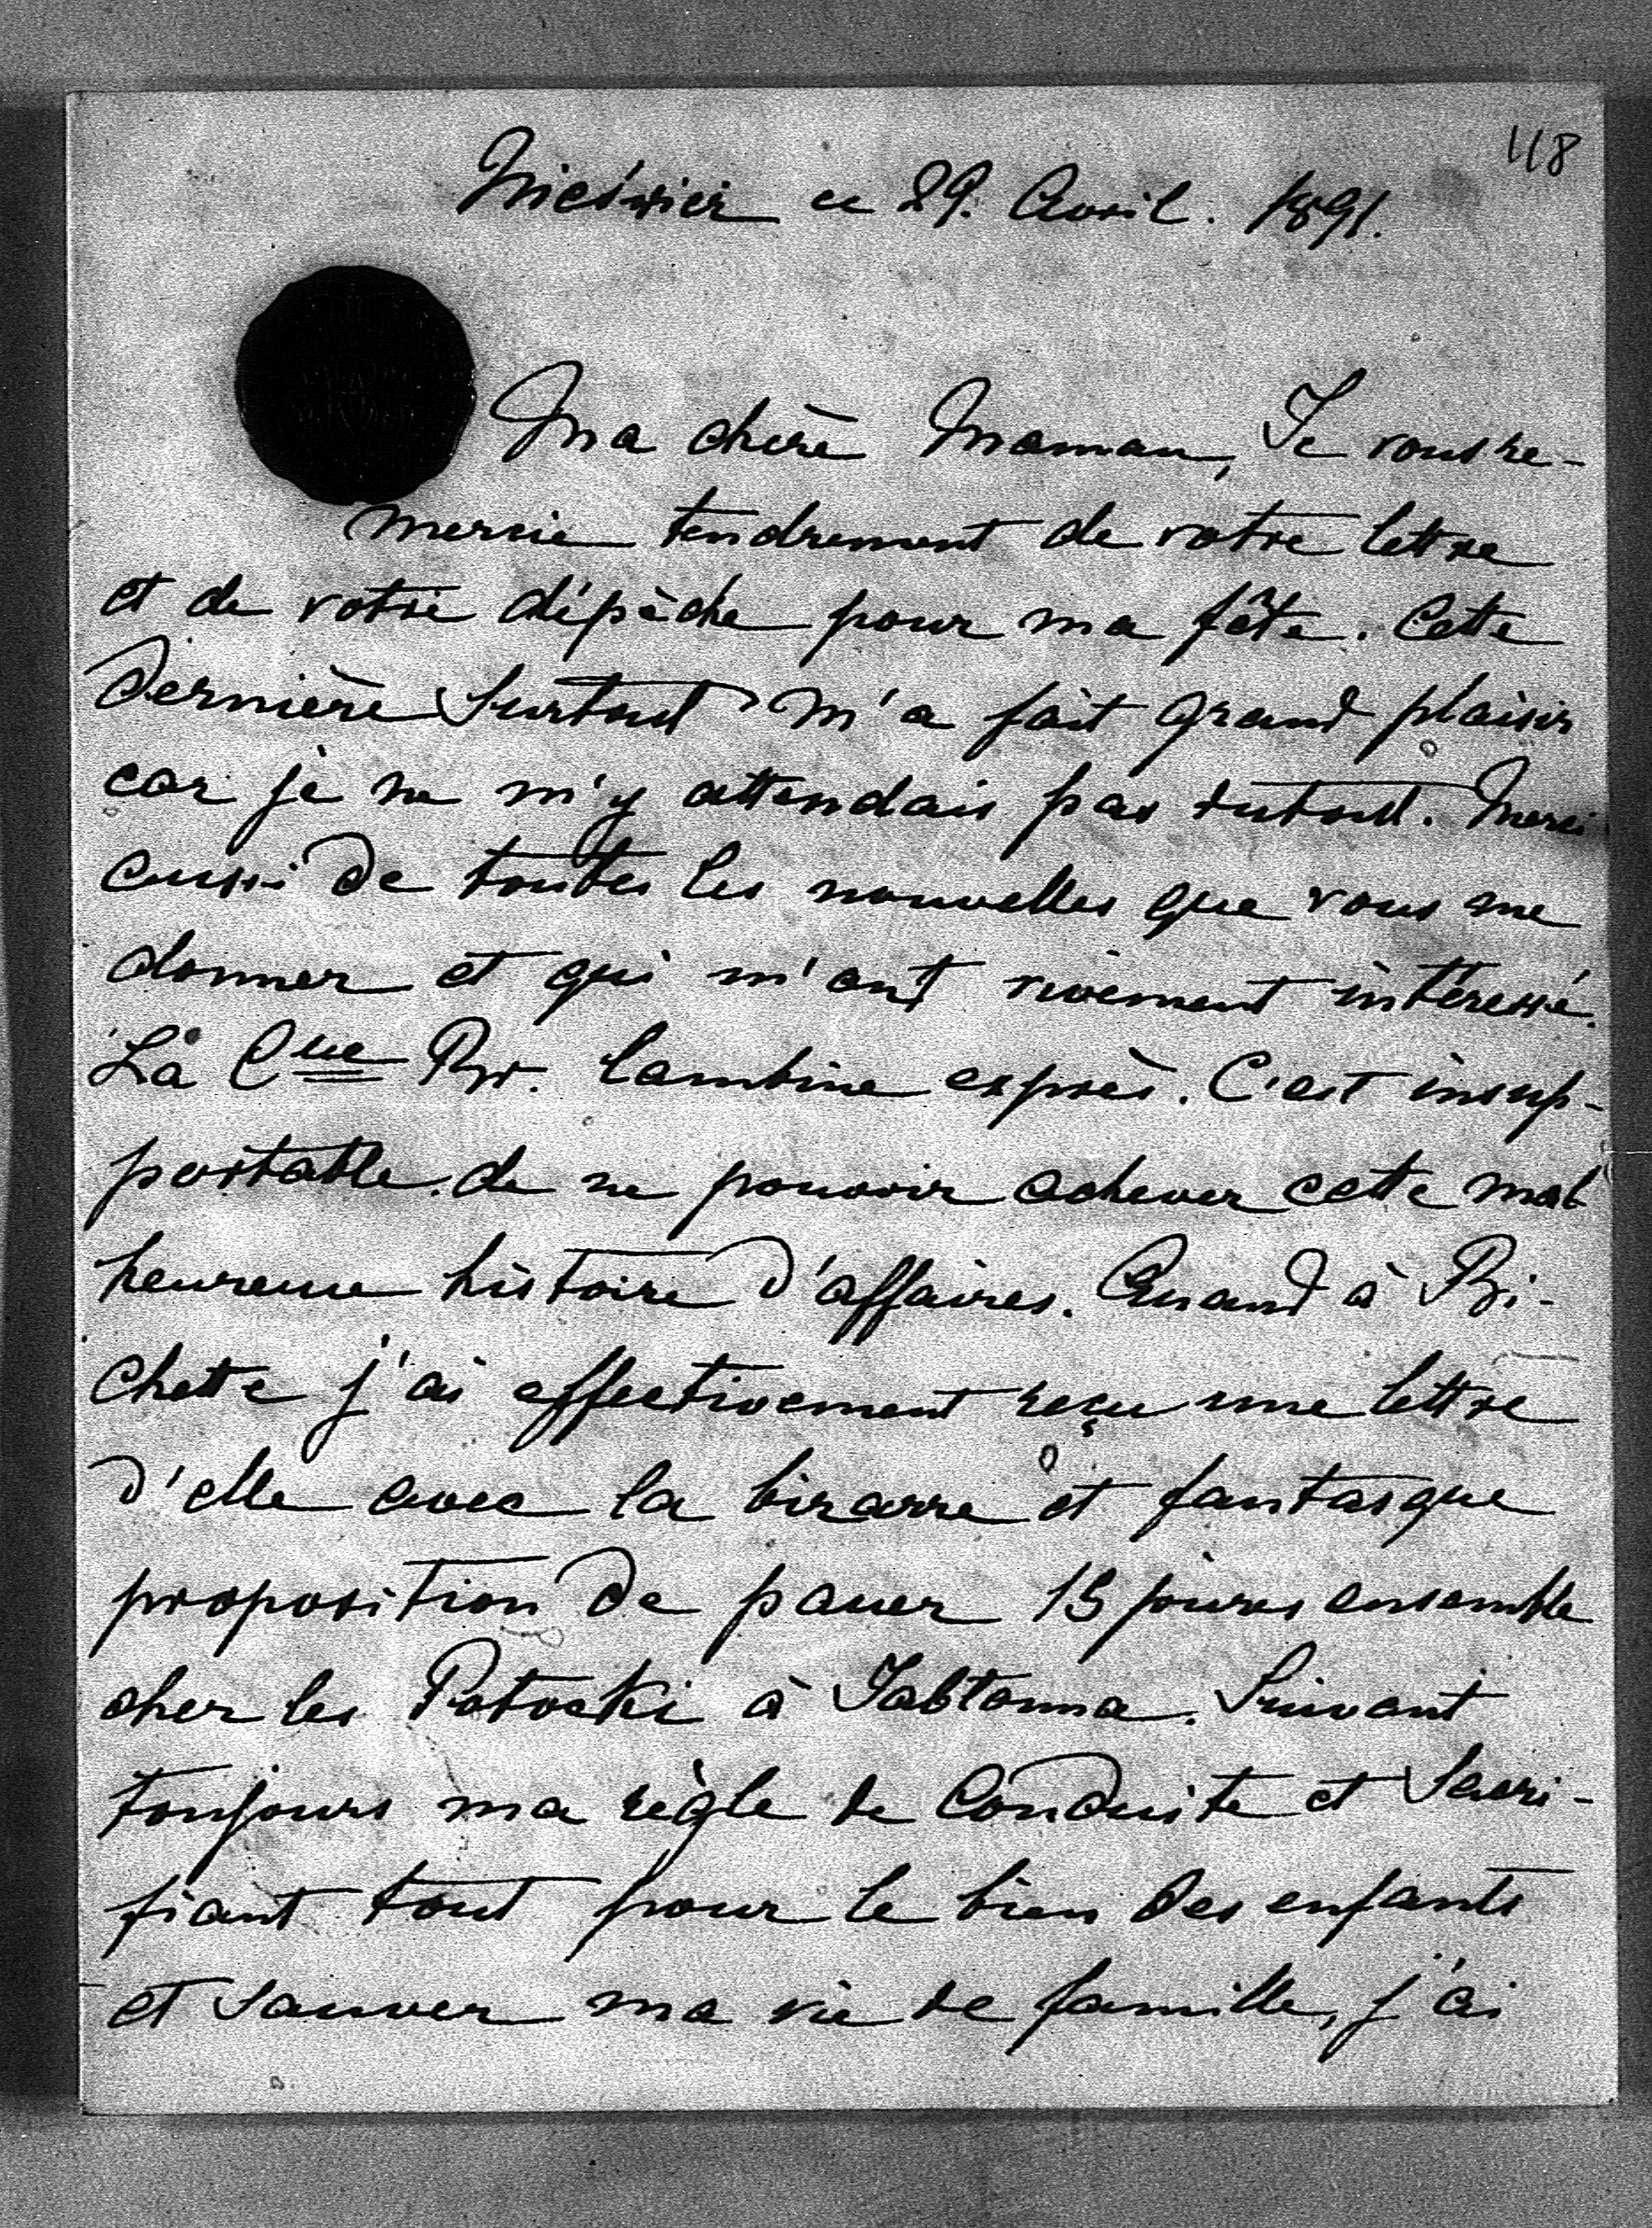 118
Nieśwież ce 29. Avril. 1891.
Ma chère Maman, Je vous re-
mercie tendrement de votre lettre
et de votre dépèche pour ma fête. Cette
dernière surtout m'a fait grand plaisir
car je ne m'y attendais pas dutout. Merci
aussi de toutes les nouvelles que vous me
donnez et qui m'ont vivement intéressé.
La Csse Br. lambine exprès. C'est insup-
portable de ne pouvoir achever cette mal
heureuse histoire d'affaires. Quand à Bi-
chette j'ai effectivement reçu une lettre
d'elle avec la bizarre et fantasque
proposition de passer 15 jours ensemble
chez les Potocki à Jabłonna. Suivant
toujours ma règle de conduite et sacri-
fiant tout pour le bien des enfants
et sauver ma vie de famille, j'ai